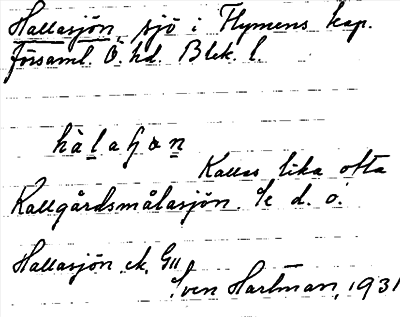 Hallasjön, sjö i Flymens kap.
församl. Ö. hd. Blek. l.
hàlaɧøn
Kallas lika ofta
Kallgårdsmålasjön. Se d. o.
Hallasjön ek. G11
Sven Hartman, 1931